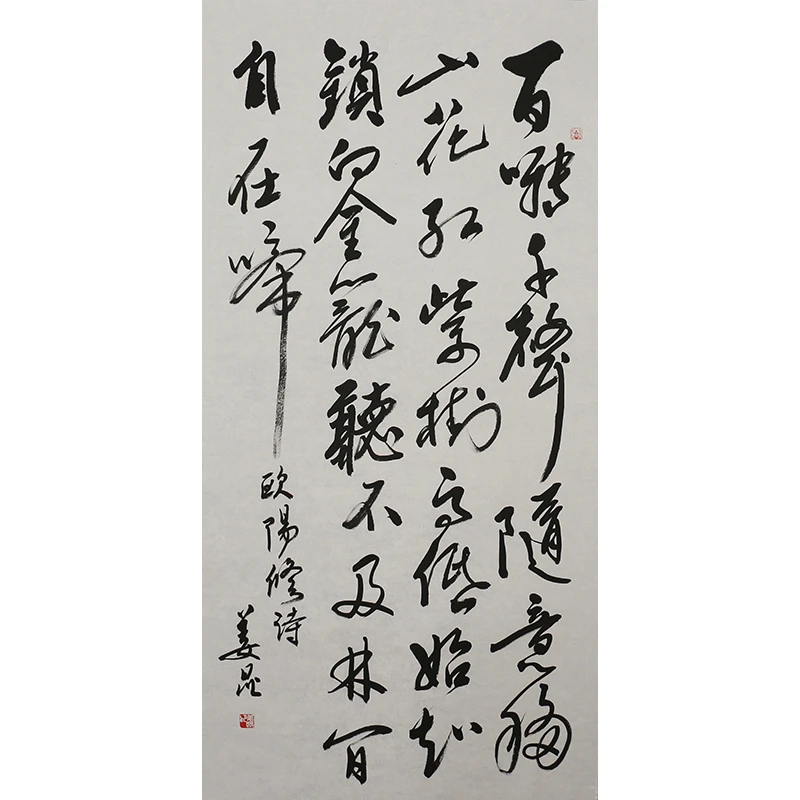 百囀千聲隨意移
山花紅紫樹高低始知
鎖向金籠聽不及林間
自在啼
歐陽修詩
姜昆